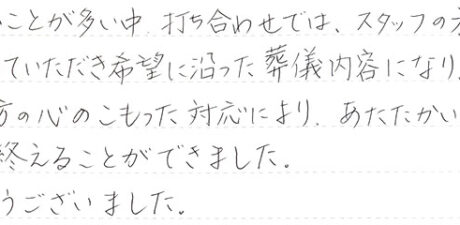 ことが多い中、打ち合わせでは、スタッフの
ていただき希望に沿った葬儀内容になり、
方の心のこもった対応により、あたたかい
終えることができました。
うございました。